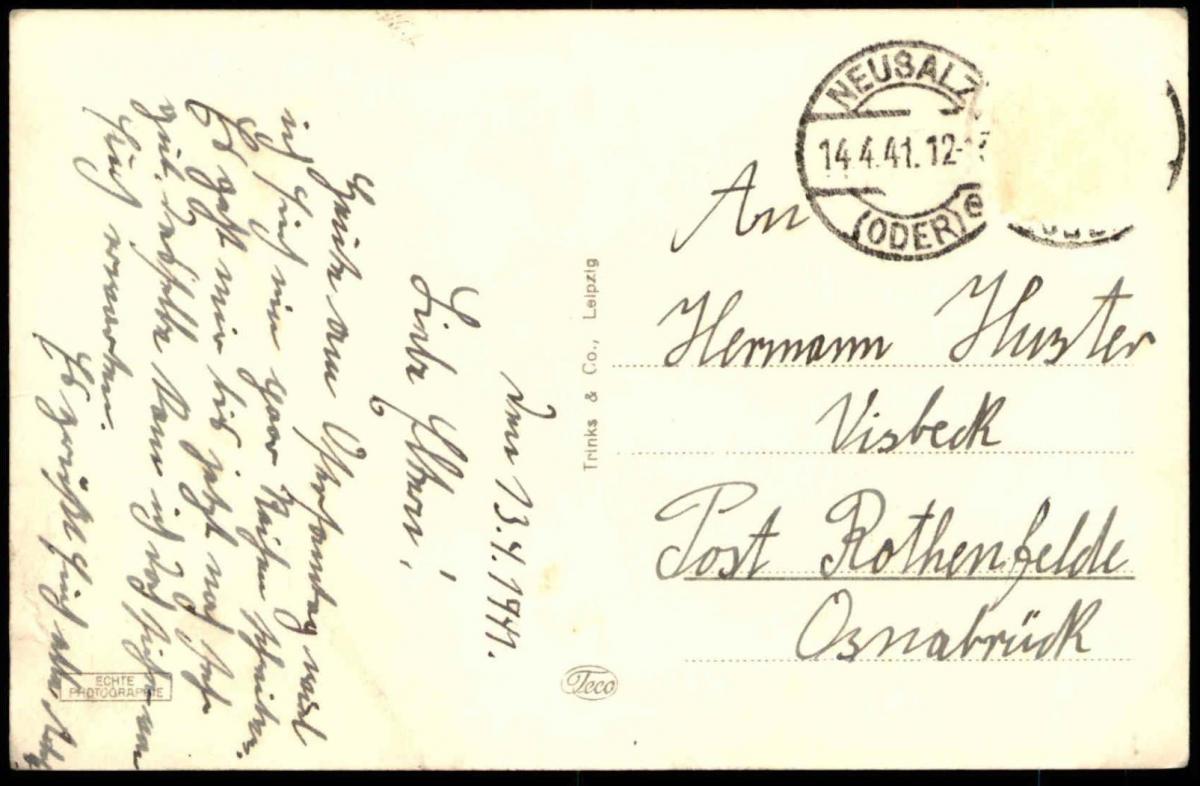 NEUSALZ
14.4.41.12-
(ODER)
An
Hermann Huster
Visbeck
Post Rothenfelde
Osnabrück
Trinks & Co., Leipzig
Teco
ECHTE
PHOTOGRAPHIE
Den 13.4.1941.
Liebe Eltern!
Heute am Ostersonntag will
ich Euch ein paar Zeilen schreiben.
Es geht mir bis jetzt noch sehr
gut. Dasselbe kann ich doch sicher von
Euch erwarten.
Es grüßt Euch alle,